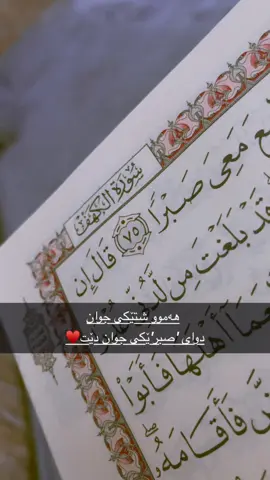 سُورَةُ الكَهْفِ
مَعِىَ صَبْرًا ٧٥ قَالَ إِن
قَدْ بَلَغْتَ مِن لَّدُنِّى
هەموو شتێکی جوان
دوای 'صبر'ێکی جوان دێت❤️
أَهْلَهَا فَأَبَوْا
فَأَقَامَهُۥ